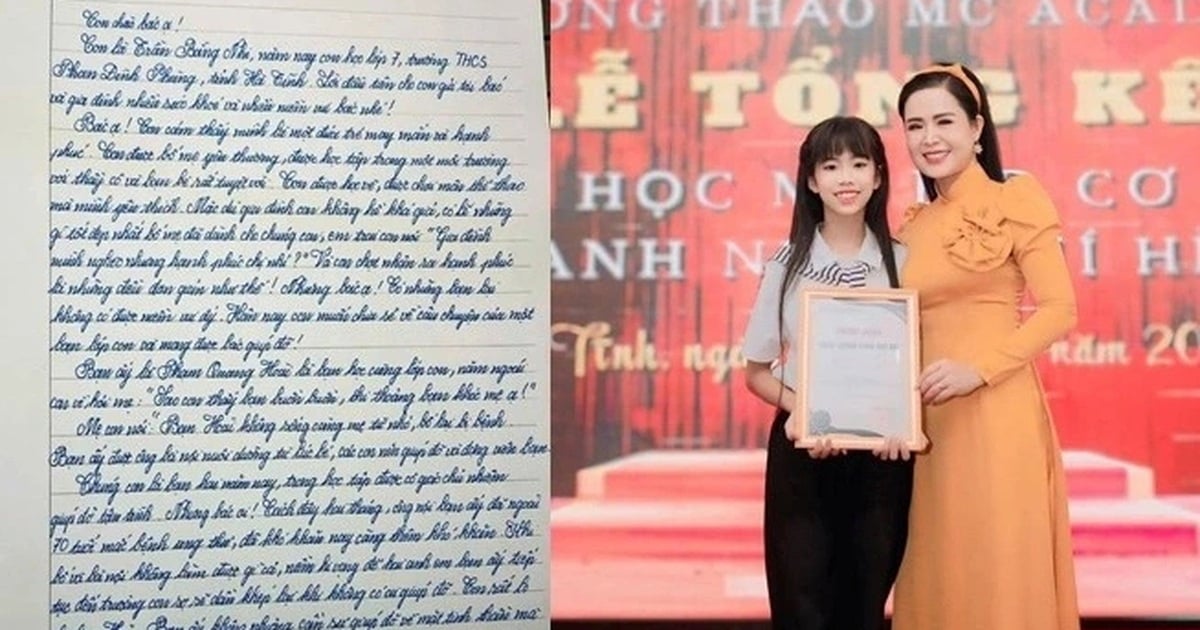 Con chào bác ạ!
Con là Trần Bảng Nhi, năm nay con học lớp 7, trường THCS
Phan Đình Phùng, tỉnh Hà Tĩnh. Lời đầu tiên cho con gửi tới bác
và gia đình nhiều sức khoẻ và nhiều niềm vui bác nhé!
Bác ạ! Con cảm thấy mình là một đức trẻ may mắn và hạnh
phúc. Con được bố mẹ yêu thương, được học tập trong một môi trường
với thầy cô và bạn bè rất tuyệt vời. Con được học vẽ, được chơi môn thể thao
mà mình yêu thích. Mặc dù gia đình con không hề khá giả, có lẽ những
gì tốt đẹp nhất bố mẹ đã dành cho chúng con, em trai con nói "Gia đình
mình nghèo nhưng hạnh phúc chị nhỉ?" Và con chợt nhận ra hạnh phúc
là những điều đơn giản như thế! Nhưng bác ạ! Có những bạn lại
không có được niềm vui ấy. Hôm nay con muốn chia sẻ về câu chuyện của một
bạn lớp con và mong được bác giúp đỡ!
Bạn ấy là Phạm Quang Hoài là bạn học cùng lớp con, năm ngoái
con về hỏi mẹ: "Sao con thấy bạn buồn buồn, thi thoảng bạn khóc mẹ ạ!"
Mẹ con nói: "Bạn Hoài không sống cùng mẹ từ nhỏ, bố lại bị bệnh.
Bạn ấy được ông bà nội nuôi dưỡng từ lúc bé, các con nên giúp đỡ và động viên bạn.
Chúng con là bạn hai năm nay, trong học tập được cô giáo chủ nhiệm
giúp đỡ tận tình. Nhưng bác ơi! Cách đây hai tháng, ông nội bạn ấy đã ngoài
70 tuổi mắc bệnh ung thư, đã khó khăn nay càng thêm khó khăn. Khi
bố và bà nội không làm được gì cả, niềm hi vọng để hai anh em bạn ấy tiếp
tục đến trường con sợ sẽ dần khép lại khi không có sự giúp đỡ. Con rất lo
Bạn ấy không những cần sự giúp đỡ về mặt tinh thần mà
ƠNG THẢO MC ACAD
LỄ TỔNG KẾ
HỌC CƠ
ANH
Tĩnh, ngà năm 20